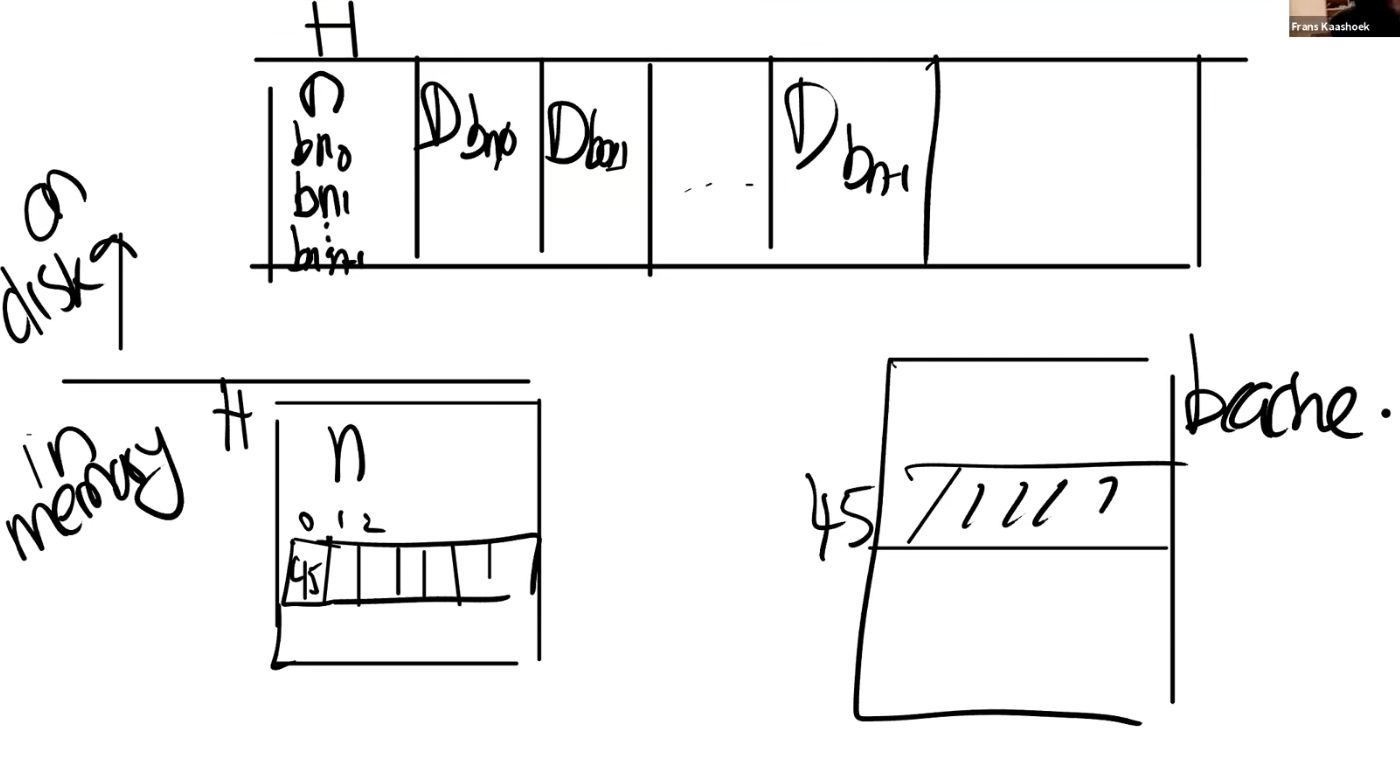 Frans Kaashoek
H
n
bn0
bn1
D bn0
D
D bn-1
on
disk
in
memory
H
n
0 1 2
45
bcache.
45